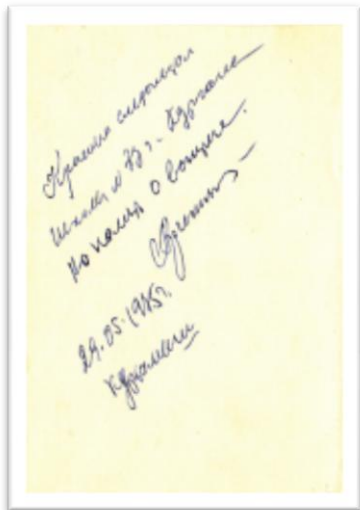 Красным следопытам
школы № 33 г. Кургана
на память о встрече.
29.05.1975г.